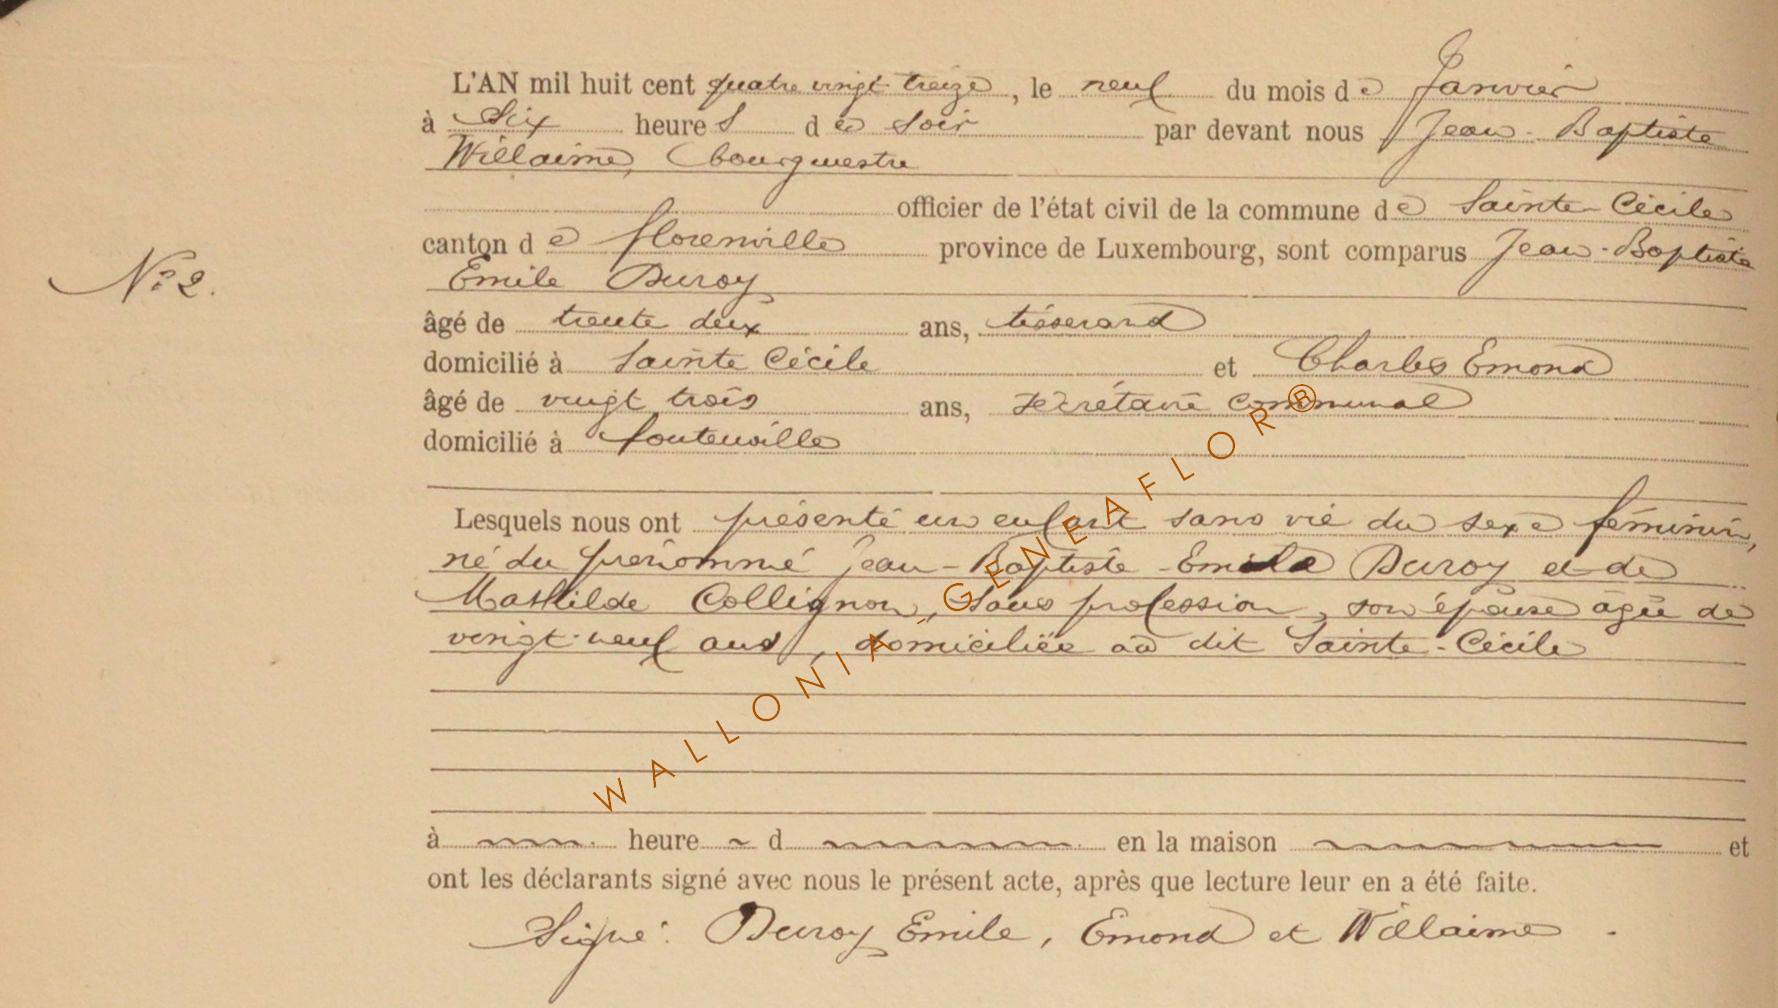 L'AN mil huit cent quatre vingt treize, le neuf du mois de Janvier
à Six heures de soir par devant nous Jean-Baptiste
Willaime, bourgmestre
officier de l'état civil de la commune de Sainte-Cécile
canton de florenville province de Luxembourg, sont comparus Jean-Baptiste
N° 2.
Emile Duroy
âgé de trente deux ans, tisserand
domicilié à Sainte Cécile et Charles Emond
âgé de vingt trois ans, secrétaire communal
domicilié à fontenoille
Lesquels nous ont présenté un enfant sans vie du sexe féminin,
né du prénommé Jean-Baptiste-Emile Duroy et de
Mathilde Collignon, sans profession, son épouse âgée de
vingt-neuf ans, domiciliée au dit Sainte-Cécile
à heure d en la maison et
ont les déclarants signé avec nous le présent acte, après que lecture leur en a été faite.
Signé: Duroy Emile, Emond et Willaime.
WALLONIA - GENEAFLOR®